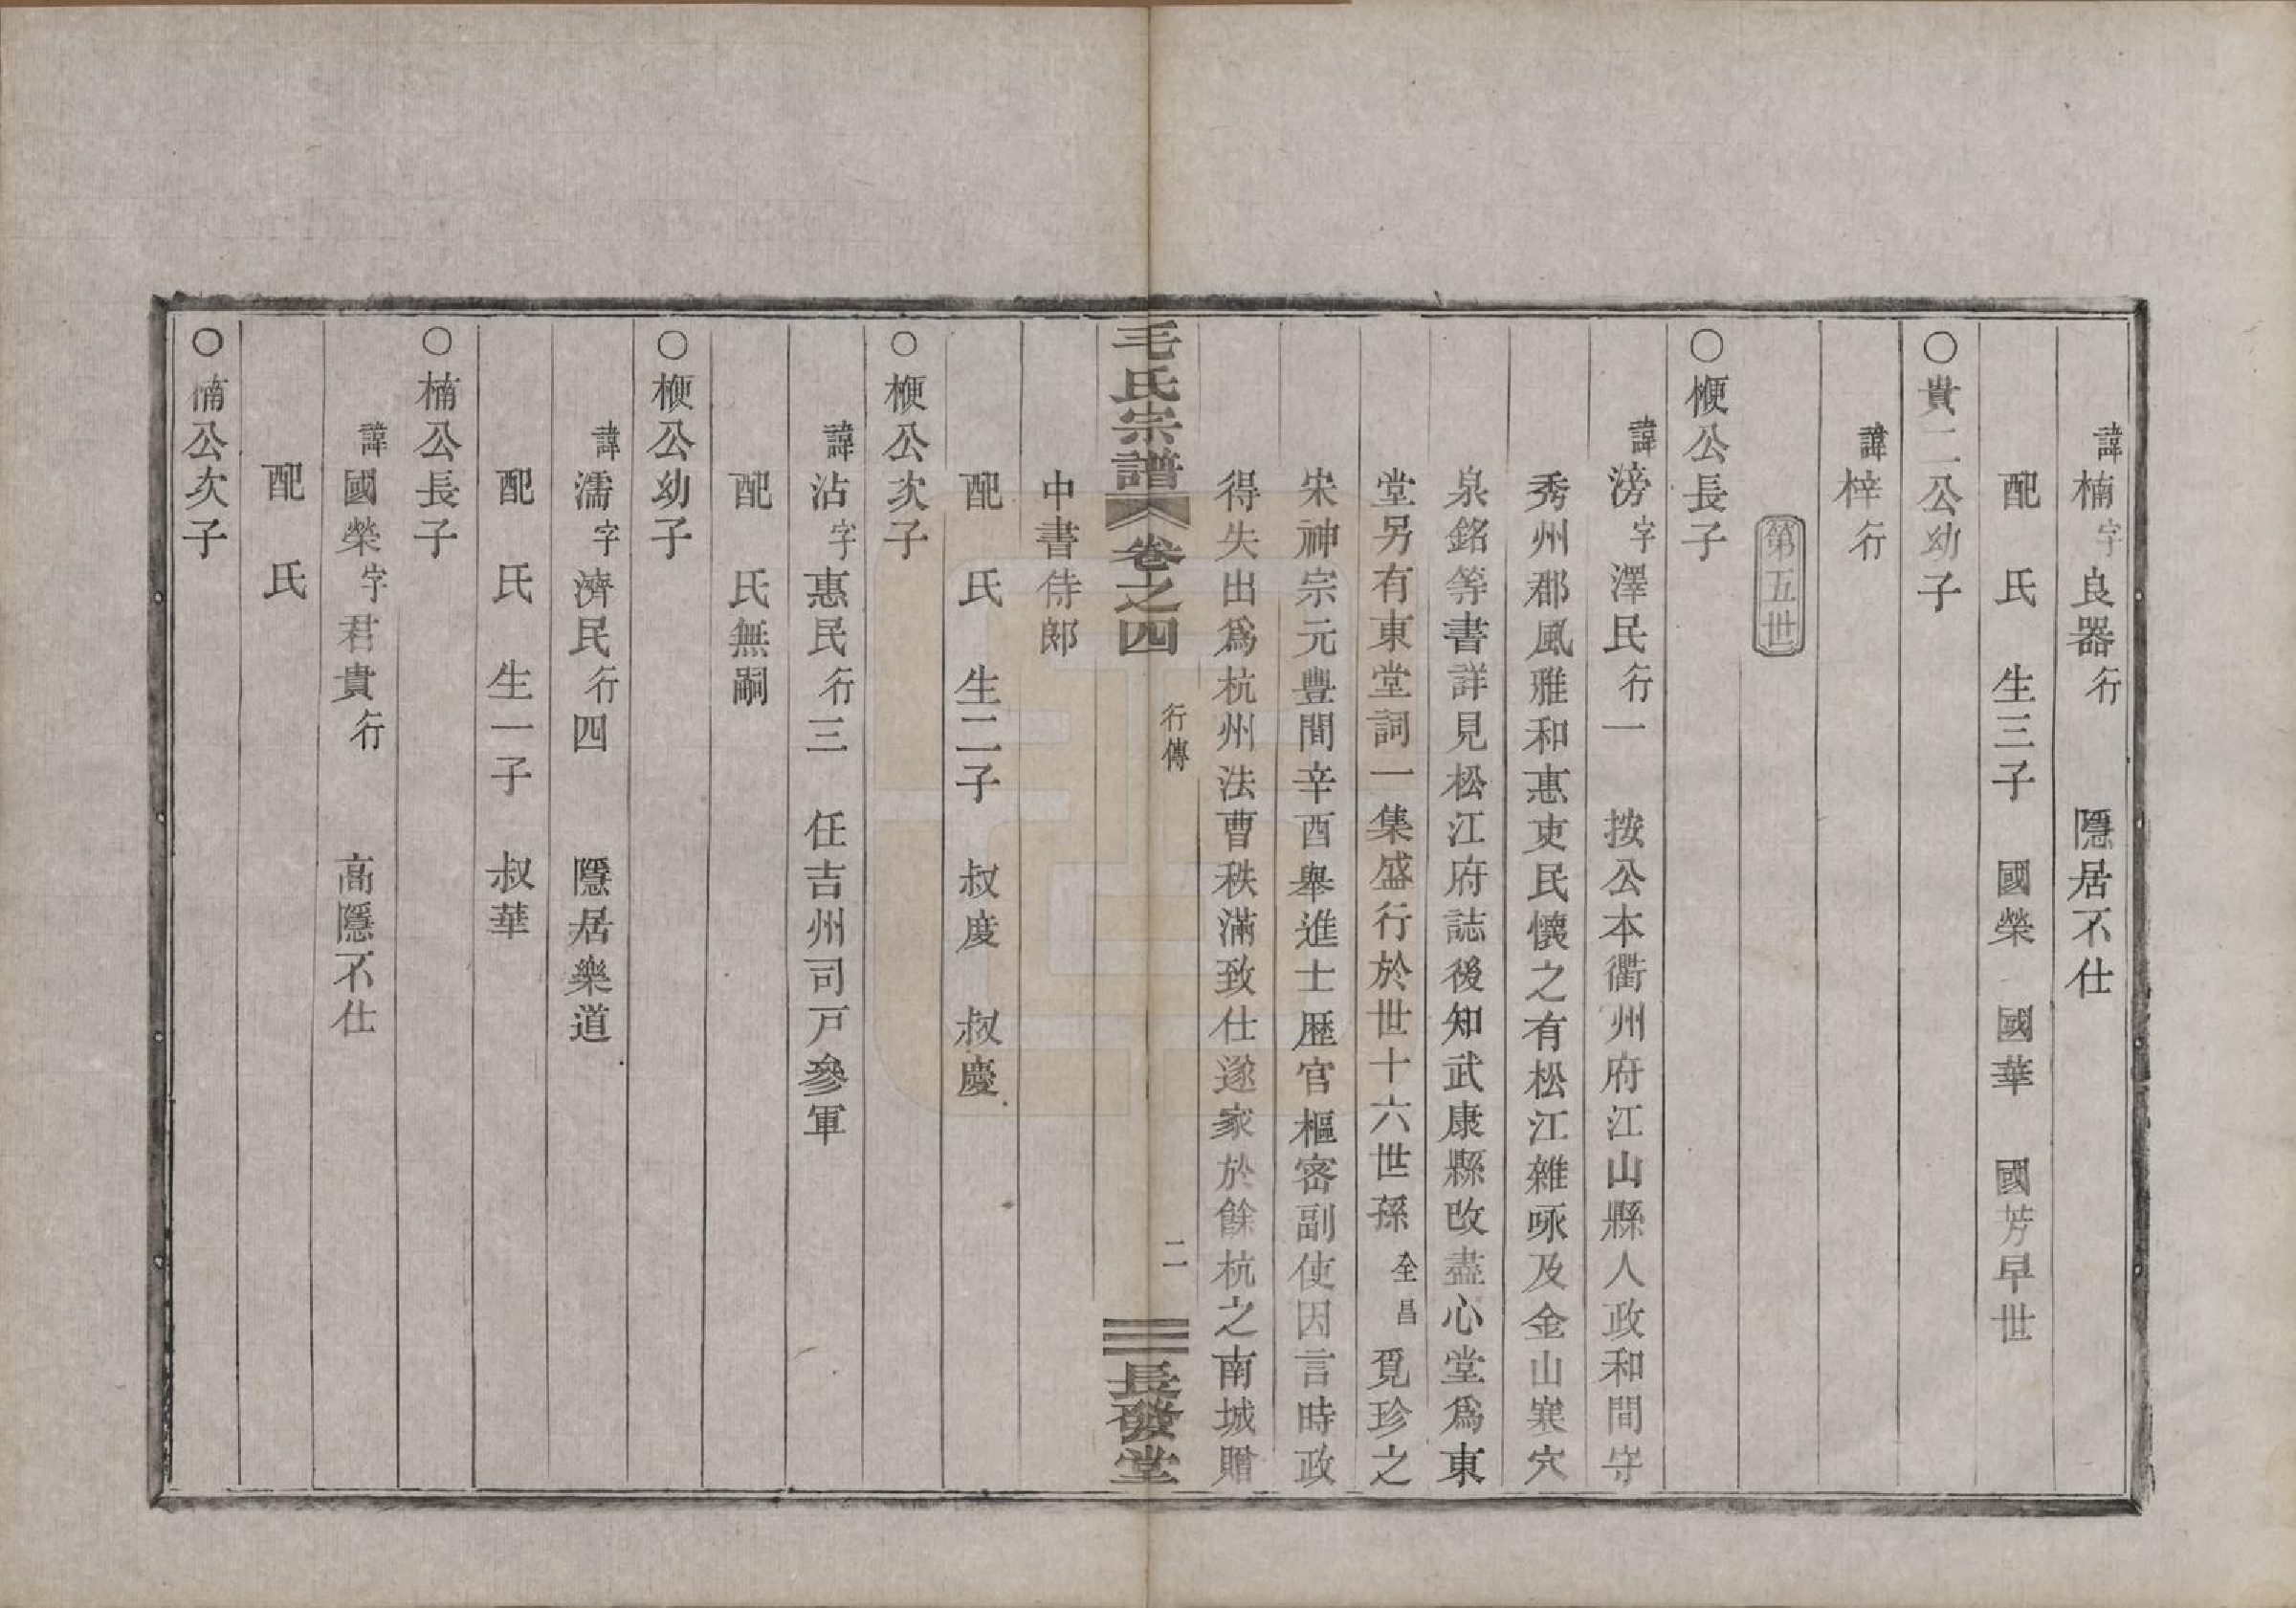 諱楠字良器行　隱居不仕
配　氏　生三子　國榮　國華　國芳早世
○貴二公幼子
諱梓行
第五世
○楩公長子
諱滂字澤民行一　按公本衢州府江山縣人政和間守
秀州郡風雅和惠吏民懷之有松江雜咏及金山寒穴
泉銘等書詳見松江府誌後知武康縣改盡心堂爲東
堂另有東堂詞一集盛行於世十六世孫全昌覓珍之
宋神宗元豐間辛酉舉進士歷官樞密副使因言時政
得失出爲杭州法曹秩滿致仕遂家於餘杭之南城贈
毛氏宗譜　卷之四　行傳　二　長發堂
中書侍郎
配　氏　生二子　叔度　叔慶
○楩公次子
諱沾字惠民行三　任吉州司戸參軍
配　氏無嗣
○楩公幼子
諱濡字濟民行四　隱居樂道
配　氏　生一子　叔華
○楠公長子
諱國榮字君貴行　高隱不仕
配　氏
○楠公次子